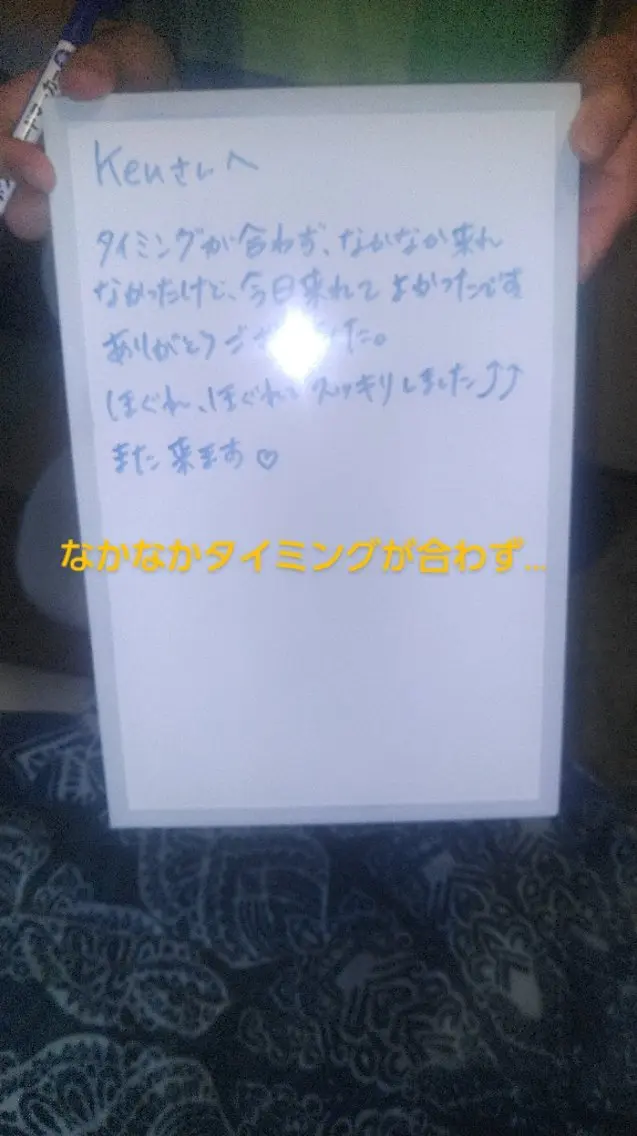 Kenさんへ
タイミングが合わず、なかなか来れ
なかったけど、今日来れてよかったです
ありがとうござ した。
ほぐれ、ほぐれて スッキリしました⤴⤴
また来ます♡
なかなかタイミングが合わず...